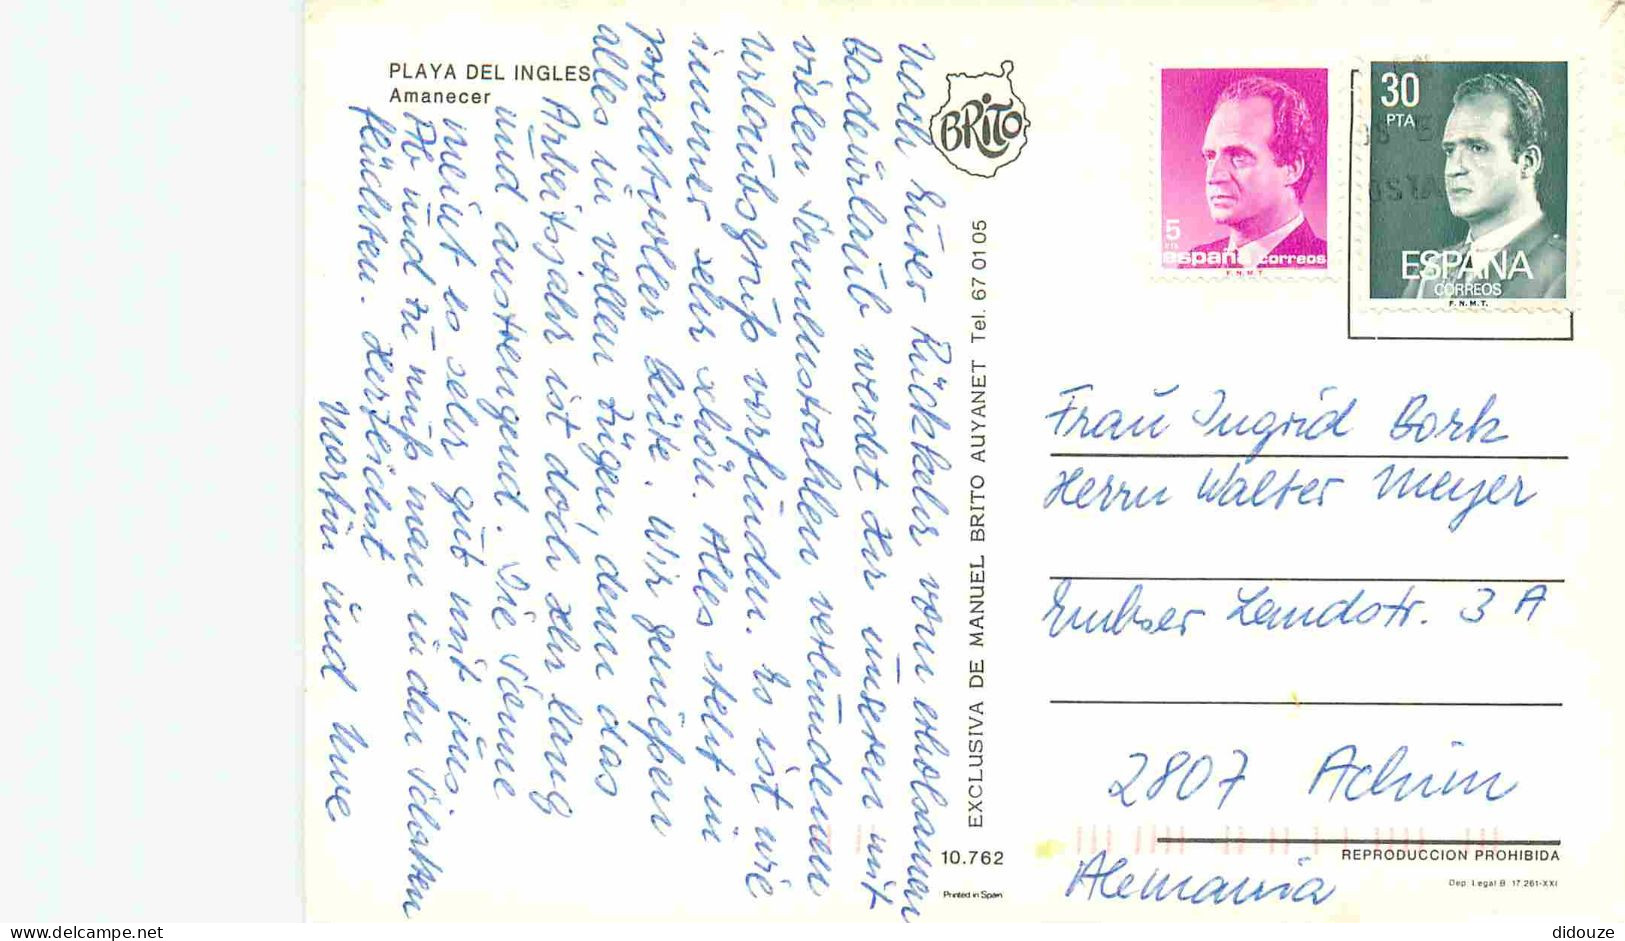 PLAYA DEL INGLES
Amanecer
Nach Eurer Rückkehr vom erholsamen
Badeurlaub werdet Ihr unseren mit
vielen Sonnenstrahlen verbundenen
Urlaubsgruß vorfinden. Es ist wie
immer sehr schön. Alles steht in
prachtvoller Blüte. Wir genießen
alles in vollen Zügen, denn das
Arbeitsjahr ist doch sehr lang
und anstrengend. Die Sonne
meint es sehr gut mit uns.
Ab und zu muß man in den Schatten
flüchten. Herzlichst
Martin und Uwe
BRITO
EXCLUSIVA DE MANUEL BRITO AUYANET Tel. 67 01 05
10.762
Printed in Spain
5
PTA
españa correos
F.N.M.T.
30
PTA
ESPAÑA
CORREOS
F.N.M.T.
Frau Ingrid Bork
Herrn Walter Meyer
Embser Landstr. 3 A
2807 Achim
Alemania
REPRODUCCION PROHIBIDA
Dep. Legal B. 17.261-XXI
didouze